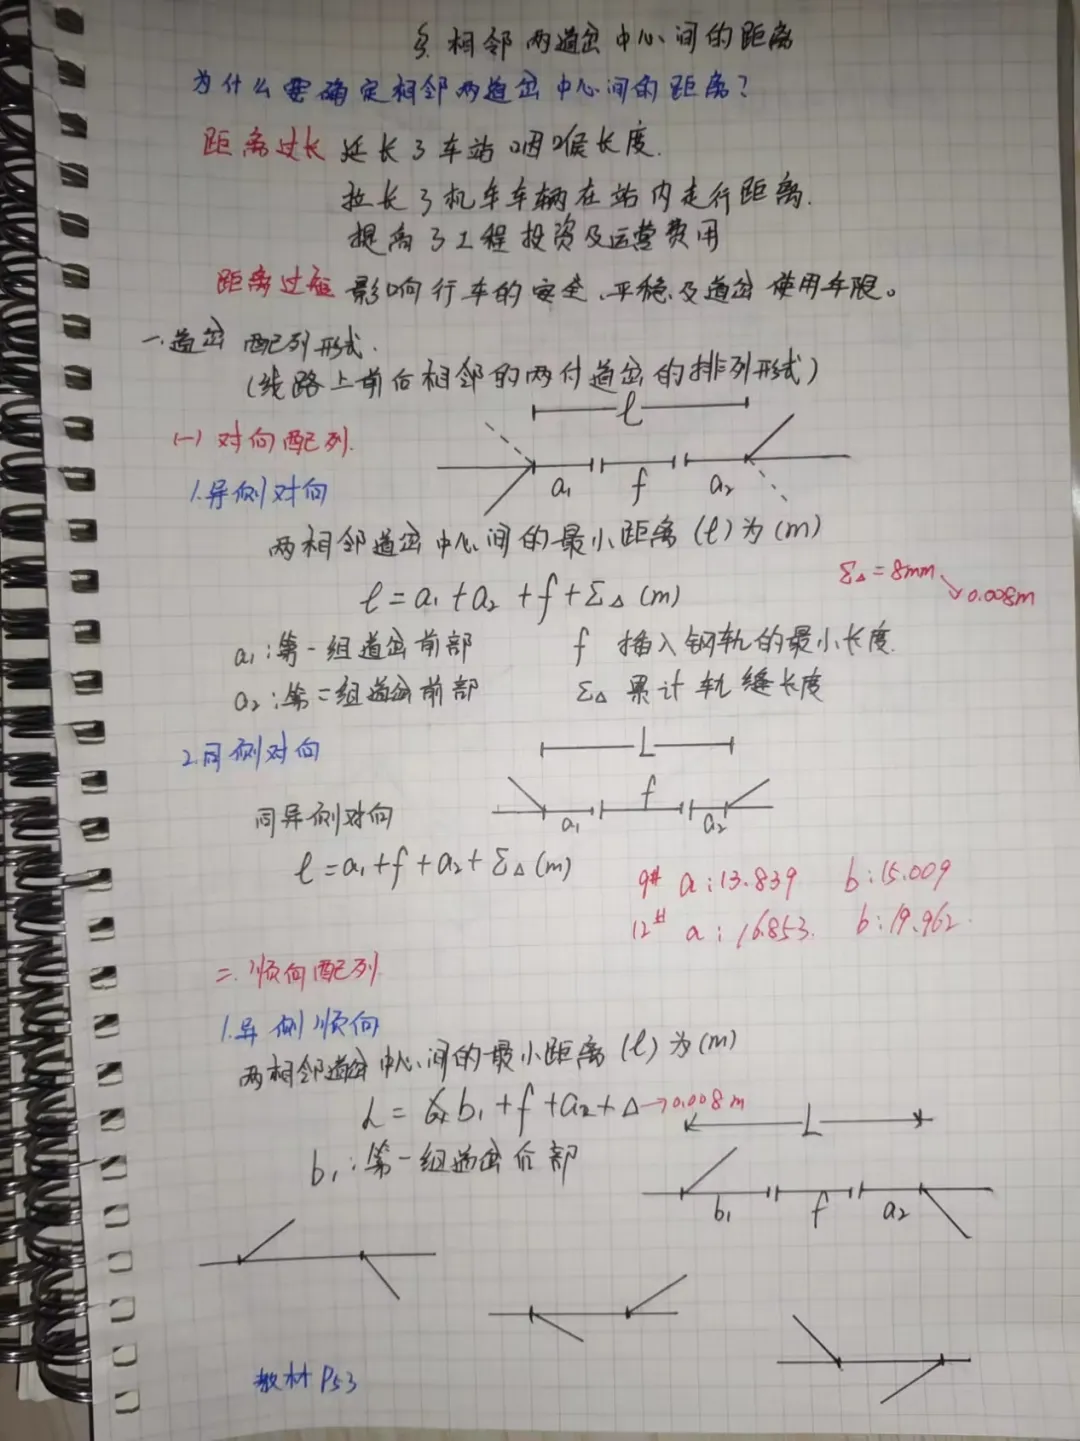 §.相邻两道岔中心间的距离
为什么要确定相邻两道岔中心间的距离?
距离过长 延长了车站咽喉长度.
拉长了机车车辆在站内走行距离.
提高了工程投资及运营费用
距离过短 影响行车的安全、平稳及道岔使用年限。
一.道岔配列形式.
(线路上前后相邻的两付道岔的排列形式)
(一)对向配列.
ℓ
a₁ f a₂
1.异侧对向
两相邻道岔中心间的最小距离(ℓ)为(m)
ℓ=a₁+a₂+f+Σ△(m)
Σ△=8mm
0.008m
a₁:第一组道岔前部 f 插入钢轨的最小长度.
a₂:第二组道岔前部 Σ△ 累计轨缝长度
2.同侧对向
L
f
a₁ a₂
同异侧对向
ℓ=a₁+f+a₂+Σ△(m)
9# a:13.839 b:15.009
12# a:16.853. b:19.962.
二.顺向配列
1.异侧顺向
两相邻道岔中心间的最小距离(ℓ)为(m)
L=b₁+f+a₂+△→0.008m
L
b₁:第一组道岔后部
b₁ f a₂
教材P53